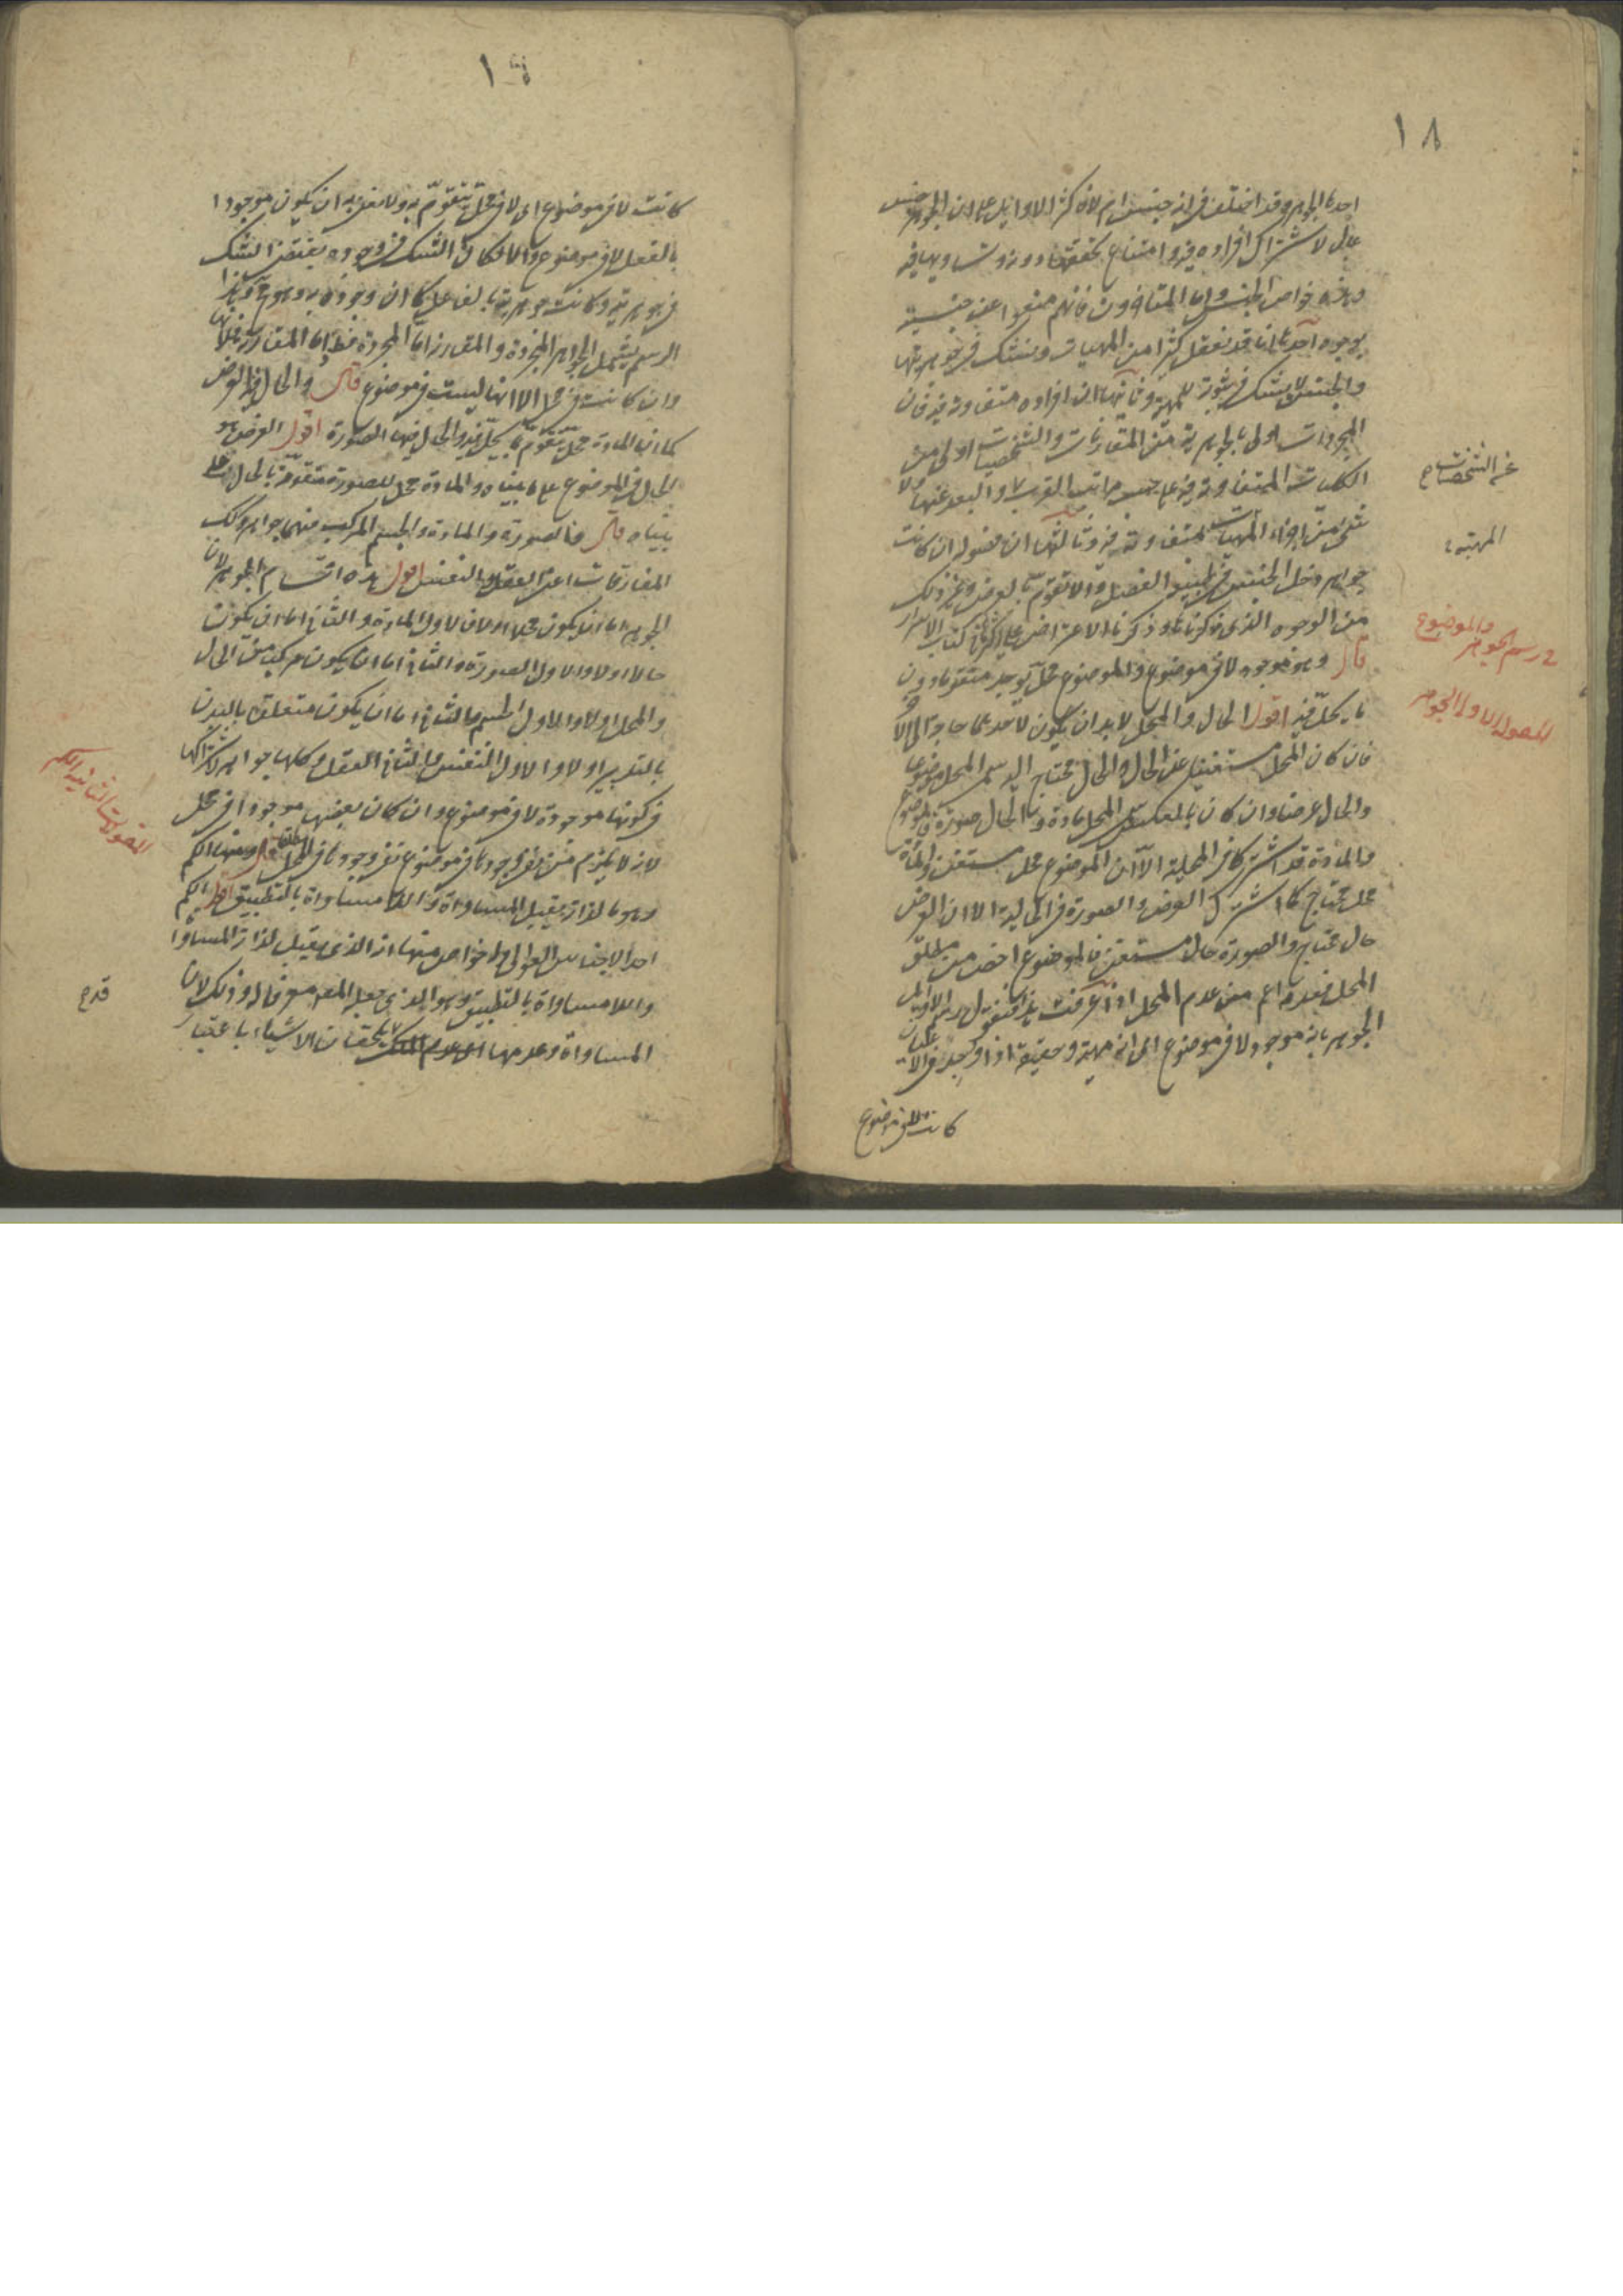 ١٨
احدها الجوهر وقد اختلف في انه جنس ام لا فاكثر الاوائل على ان الجوهر جنس
عال لاشتراك افراده فيه وامتناع تحققها دونه وتساويها فيه
وهذه خواص الجنس واما المتاخرون فانهم منعوا من جنسيته
بوجوه احدها انا قد نعقل كثيرا من المهيات ونشك في جوهريتها
والجنس لا يشك في ثبوته للمهية وثانيها ان افراده متفاوتة فيه فان
المجردات اولى بالجوهرية من المقارنات والشخصيات اولى من
الكليات المتفاوتة فيه على حسب مراتب القرب والبعد عنها ولا
شئ من اجزاء المهيات بمتفاوتة فيه وثالثها ان فصوله ان كانت
جواهر دخل الجنس في طبيعة الفصل والا تقوم بالعرض وغير ذلك
من الوجوه الذي ذكرناها وذكرنا الاعتراض على اكثرها في كتاب الاسرار
قال وهو موجود لا في موضوع والموضوع محل يوجد متقوما دون
ما يحل فيه اقول الحال والمحل لابد ان يكون لاحدهما حاجة الى الاخر
فان كان المحل مستغنيا عن الحال والحال محتاج اليه سمى المحل موضوعا
والحال عرضا وان كان بالعكس سمى المحل مادة والحال صورة فالموضوع
والمادة قد اشتركا في المحلية الا ان الموضوع محل مستغن والمادة
محل محتاج كما اشترك العرض والصورة في الحالية الا ان العرض
حال محتاج والصورة حال مستغن فالموضوع اخص من مطلق
المحل فعدمه اعم من عدم المحل اذا عرفت هذا فنقول رسم الاوائل
الجوهر بانه موجود لا في موضوع اى انه مهية وحقيقة اذا وجدت في الاعيان
كانت لا في موضوع
عن الشخصيات
المهية
في رسم الجوهر والموضوع
المقولة الاولى الجوهر
١٩
كانت لا في موضوع اى لا في محل يتقوم به ولا نعنى به ان يكون موجودا
بالفعل لا في موضوع والا لكان الشك في وجوده يقتضى الشك
في جوهريته وكانت جوهريته بالفاعل كما ان وجوده به وهو مح وهذا
الرسم يشمل الجواهر المجردة والمقارنة اما المجردة فظ واما المقارنة فلانها
وان كانت في محل الا انها ليست في موضوع قال والحال فيه العرض
كما ان المادة محل يتقوم بما يحل فيه والحال فيها الصورة اقول العرض هو
الحال في الموضوع على ما بيناه والمادة محل للصورة متقومة بالحال على ما
بيناه قال فالصورة والمادة والجسم المركب منهما جواهر وكذلك
المفارقات اعنى العقل والنفس اقول هذه اقسام الجوهر لان
الجوهر اما ان يكون محلا او لا فالاول المادة والثانى اما ان يكون
حالا او لا والاول الصورة والثانى اما ان يكون مركبا من الحال
والمحل او لا والاول الجسم والثانى اما ان يكون متعلقا بالبدن
بالتدبير او لا والاول النفس والثانى العقل وكلها جواهر لاشتراكها
في كونها موجودة لا في موضوع وان كان بعضها موجودا في محل
لانه لا يلزم من نفى وجودها في موضوع نفى وجودها في المحل المطلق قال ومنها الكم
وهو ما لذاته يقبل المساواة واللامساواة بالتطبيق اقول الكم
احد الاجناس العوالى وله خواص منها انه الذى يقبل لذاته المساواة
واللامساواة بالتطبيق وهو الذى جعله المص معرفا له وذلك لان
المساواة وعدمها يلحقان الاشياء باعتبار
المقولة الثانية الكم